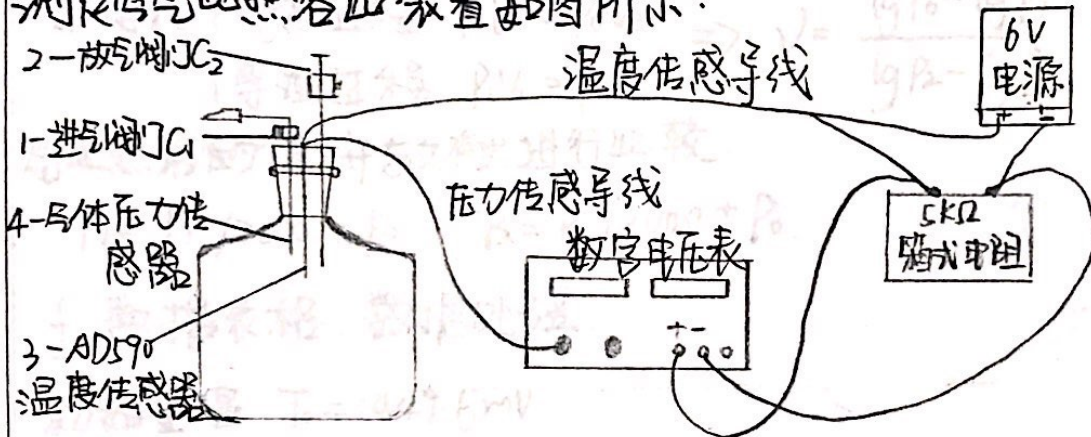 测定空气比热容比 装置如图所示:
2-放气阀门C₂
1-进气阀门C₁
4-气体压力传
感器
3-AD590
温度传感器
温度传感导线
压力传感导线
数字电压表
+ -
6V
电源
+ -
5kΩ
箱式电阻